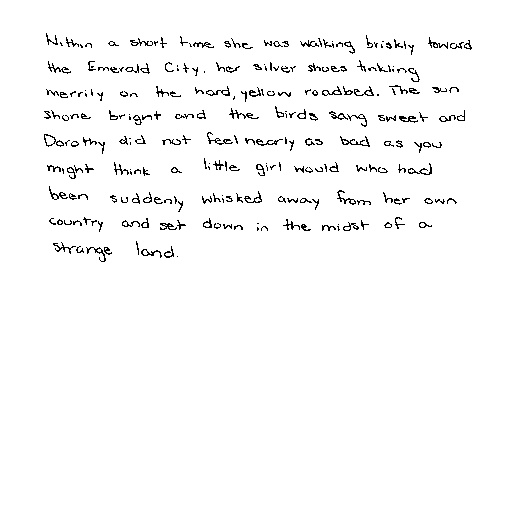 Within a short time she was walking briskly toward
the Emerald City. her silver shoes tinkling
merrily on the hard, yellow roadbed. The sun
shone bright and the birds sang sweet and
Dorothy did not feel nearly as bad as you
might think a little girl would who had
been suddenly whisked away from her own
country and set down in the midst of a
strange land.